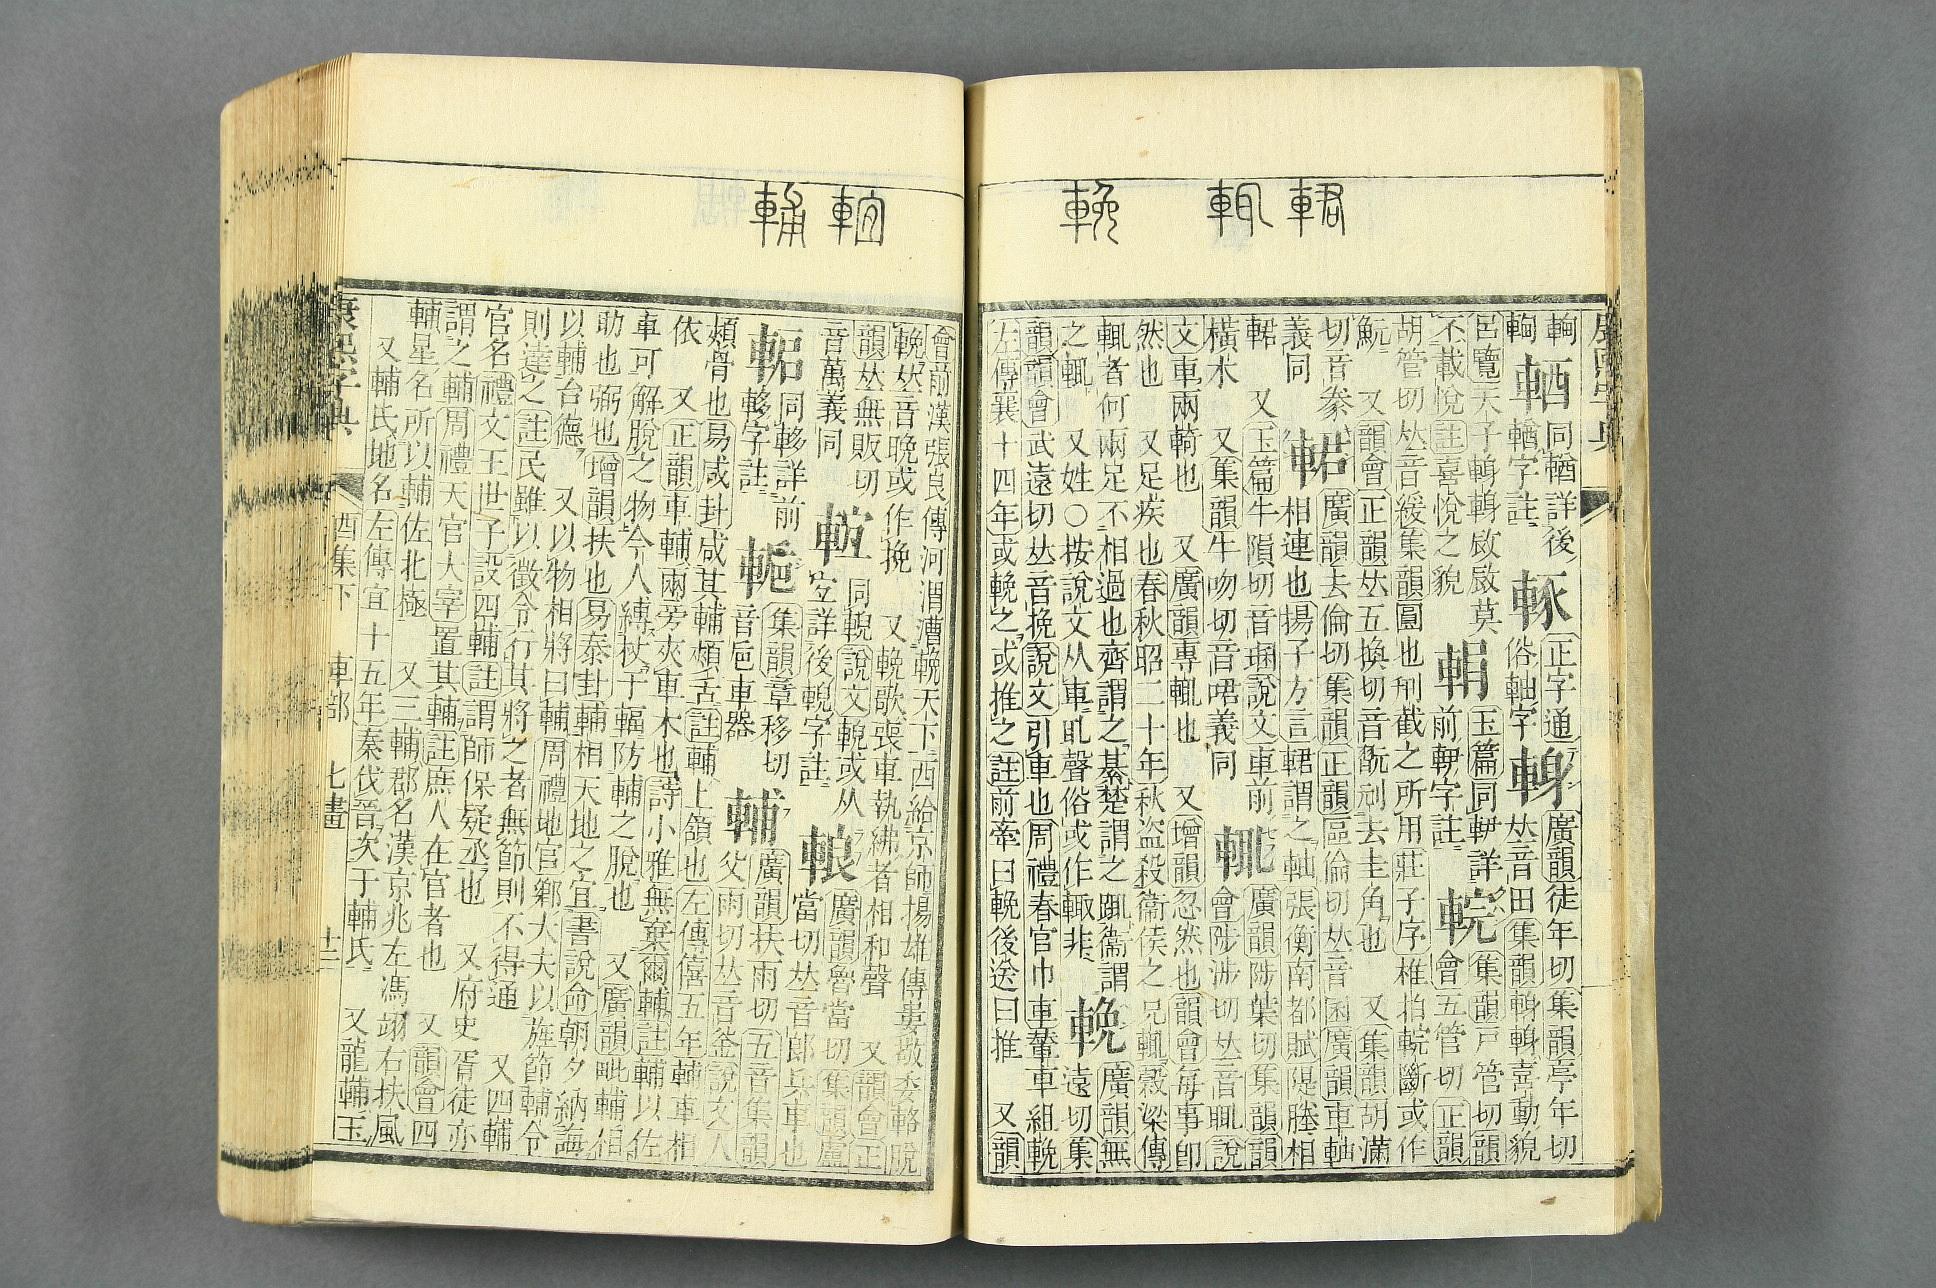 輑 輒 輓
輷 輔
輷 輶 同輶詳後 䡬 正字通 䡩 廣韻徒年切集韻亭年切
輷 輶字註 俗軸字 𠀤音田集韻䡩䡩喜動貌
呂覽天子䡩䡩啟啟莫 䡞 玉篇同䡞詳 輐 集韻戸管切韻
不載悅註喜悅之貌 前䡞字註 會五管切正韻
胡管切𠀤音緩集韻圓也刓截之所用莊子序椎拍輐斷或作
䡇 又韻會正韻𠀤五換切音翫刓去圭角也 又集韻胡滿
切音豢 輑 廣韻去倫切集韻正韻區倫切𠀤音囷廣韻車軸
義同 相連也揚子方言輑謂之軸張衡南都賦隄塍相
輑 又玉篇牛隕切音𪘩說文車前
橫木 又集韻牛吻切音㖧義同 輒 廣韻陟葉切集韻韻
會陟涉切𠀤音䎲說
文車兩輢也 又廣韻專輒也 又增韻忽然也韻會每事卽
然也 又足疾也春秋昭二十年秋盜殺衞侯之兄輒穀梁傳
輒者何兩足不相過也齊謂之綦楚謂之踂衞謂
之輒 又姓○按說文从車耴聲俗或作輙非 輓 廣韻無
遠切集
韻韻會武遠切𠀤音挽說文引車也周禮春官巾車輦車組輓
左傳襄十四年或輓之或推之註前牽曰輓後送曰推 又韻
會前漢張良傳河渭漕輓天下西給京師揚雄傳婁敬委輅脫
輓𠀤音晚或作挽 又輓歌喪車執紼者相和聲 又韻會正
韻𠀤無販切 同輗說文輗或从
音萬義同 䡔 宐詳後輗字註 䡙 廣韻魯當切集韻盧
當切𠀤音郎兵車也
𨌅 同䡢詳前 䡋 集韻章移切 輔 廣韻扶雨切五音集韻
䡢字註 音卮車器 父雨切𠀤音釜說文人
頰骨也易咸卦咸其輔頰舌註輔上頷也左傳僖五年輔車相
依 又正韻車輔兩旁夾車木也詩小雅無棄爾輔註輔以佐
車可解脫之物今人縛杖于輻防輔之脫也 又廣韻毗輔相
助也弼也增韻扶也易泰卦輔相天地之宜書說命朝夕納誨
以輔台德 又以物相將曰輔周禮地官鄕大夫以旌節輔令
則達之註民雖以徵令行其將之者無節則不得通 又四輔
官名禮文王世子設四輔註謂師保疑丞也 又府史胥徒亦
謂之輔周禮天官大宰置其輔註庶人在官者也 又韻會四
輔星名所以輔佐北極 又三輔郡名漢京兆左馮翊右扶風
又輔氏地名左傳宣十五年秦伐晉次于輔氏 又龍輔玉
康熙字典 酉集下 車部 七畫 十二